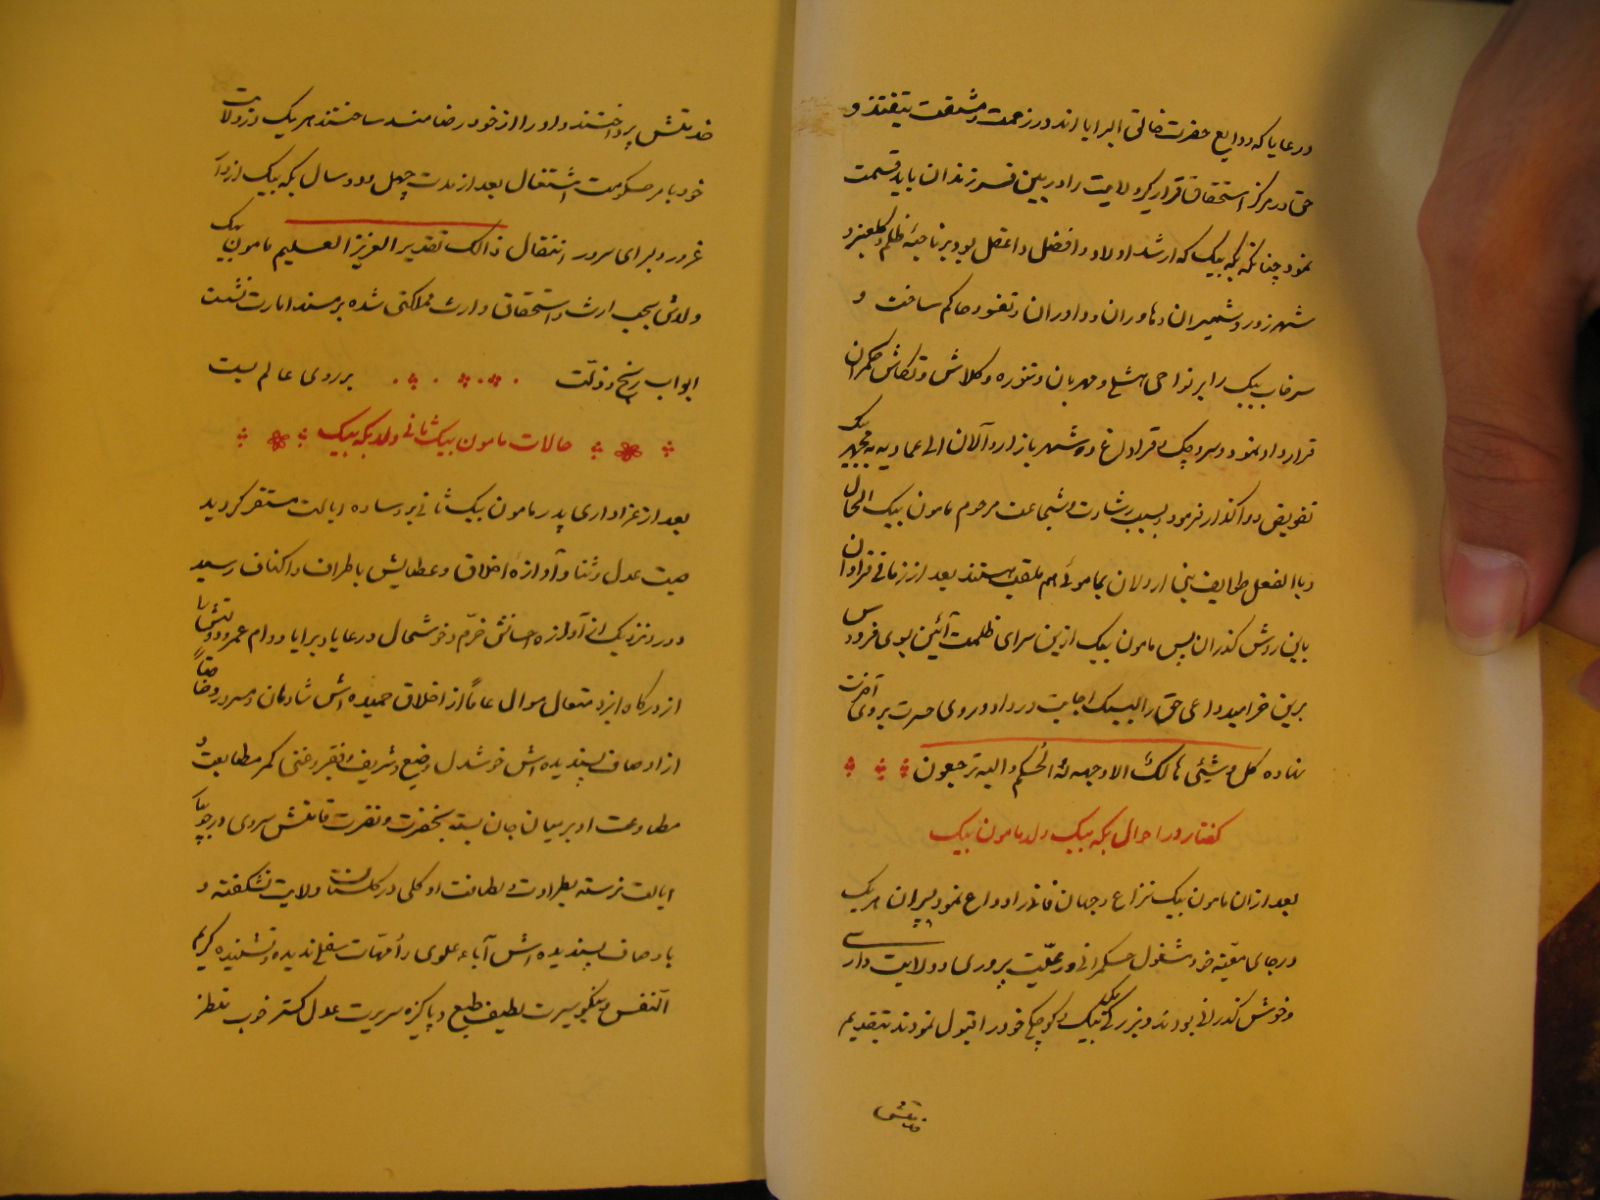 و رعایا که ودایع حضرت خالق البرایا اند در زحمت و مشقت نیفتند و
حق در مرکز استحقاق قرار گیرد ولایت را در بین فرزندان باید قسمت
نمود چنانکه بکه بیک که ارشد اولاد و افضل و اعقل بود بر ناحیهٔ ظلم و گلعنبر
شهرزور و شمیران و هاوران و داوران و تفود حاکم ساخت و
سرخاب بیک را بر نواحی مشیله و مهربان و تنوره و کلاش و نکاش حکمران
قرار داد نمود و سروچک و قراداغ و شهربازار و آلان الی عمادیه به محمد بیک
تفویض و واگذار فرمود بسبب رشادت و شجاعت مرحوم مامون بیک الحال
و بالفعل طوایف بنی اردلان بماموئی هم ملقب هستند بعد از زمانی فراوان
باین روش گذران پس مامون بیک ازین سرای ظلمت آئین بسوی فردوس
برین خرامید داعی حق را لبیک اجابت در داد و روی حسرت بروی آخرت
نهاده کل شیئی هالک الا وجهه له الحکم و الیه ترجعون
گفتار در احوال بکه بیک ولد مامون بیک
بعد از آن مامون بیک نزاع جهان فانی را وداع نمود پسران هر یک
در جای معینه خود مشغول حکمرانی و رعیت پروری و ولایت داری
و خوش گذرانی بودند و بزرگی بکه بیک و کوچکی خود را قبول نمودند بتقدیم
خدمتش
خدمتش پرداختند و او را از خود رضامند ساختند هر یک در ولایت
خود بامر حکومت اشتغال بعد از مدت چهل و دو سال بکه بیک از دار
غرور و برای سرور انتقال ذالک تقدیر العزیز العلیم مامون بیک
ولدش بحسب ارث و استحقاق وارث مملکتی شده بر مسند امارت نشست
ابواب رنج و ذلت بر روی عالم بست
حالات مامون بیک ثانی ولد بکه بیک
بعد از عزاداری پدر مامون بیک ثانی بر وساده ایالت مستقر گردید
صیت عدل و ثنا و آوازهٔ اخلاق و عطایش باطراف و اکناف رسید
دور و نزدیک از آوازه احسانش خرم و خوشحال و رعایا و برایا دوام عمر و دولتش را
از درگاه ایزد متعال سوال عاماً از اخلاق حمیده اش شادمان و مسرور و خاصاً
از اوصاف پسندیده اش خوشدل وضیع و شریف و فقیر و غنی کمر مطابعت و
مطاوعت او بر میان جان بسته بخضرت و نضرت قامتش سروی در جویبار
ایالت نرسته بطراوت و لطافت او گلی در گلستان ولایت نشکفته و
باوصاف پسندیده اش آباء علوی و امهات سفلی ندیده و نشنیده کریم
النفس و نیکو سیرت لطیف طبع و پاکیزه سریرت عدل گستر خوب منظر